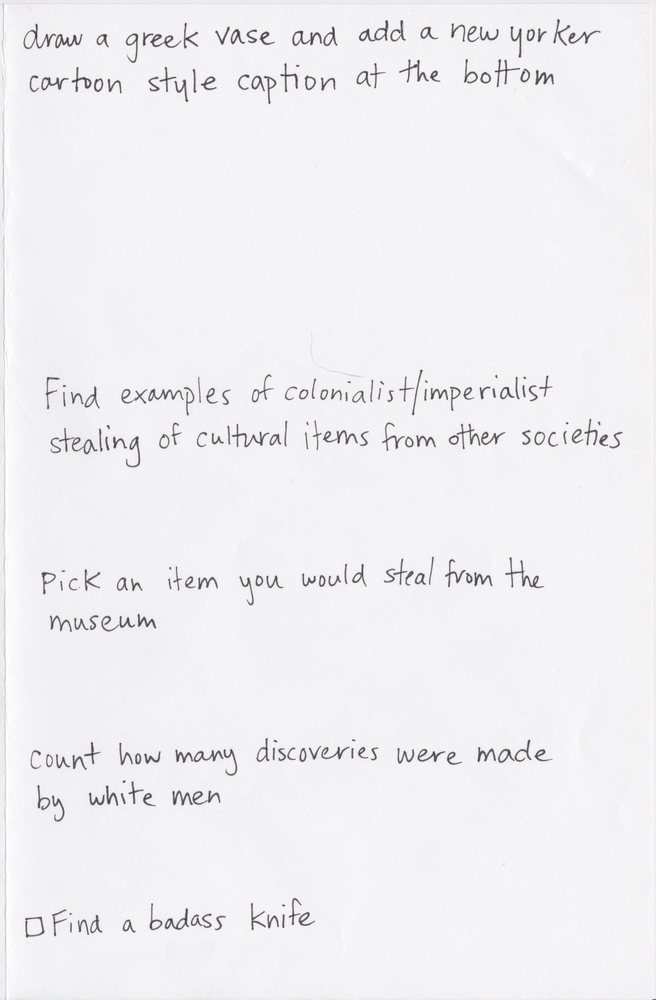 draw a greek vase and add a new yorker
cartoon style caption at the bottom
Find examples of colonialist/imperialist
stealing of cultural items from other societies
Pick an item you would steal from the
museum
count how many discoveries were made
by white men
☐ Find a badass knife